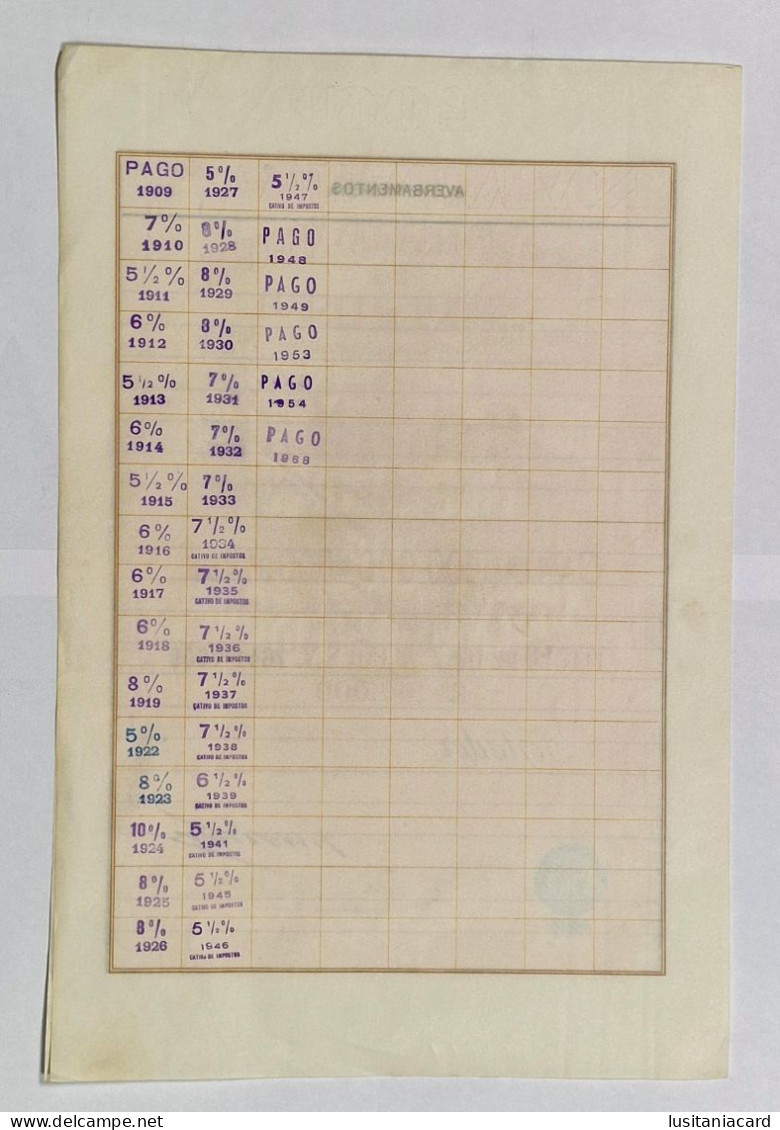 AVERBAMENTOS
PAGO
1909
7%
1910
5 1/2 %
1911
6%
1912
5 1/2 %
1913
6%
1914
5 1/2 %
1915
6%
1916
6%
1917
6%
1918
8%
1919
5%
1922
8%
1923
10%
1924
8%
1925
8%
1926
5%
1927
8%
1928
8%
1929
8%
1930
7%
1931
7%
1932
7%
1933
7 1/2 %
1934
CATIVO DE IMPOSTOS
7 1/2 %
1935
CATIVO DE IMPOSTOS
7 1/2 %
1936
CATIVO DE IMPOSTOS
7 1/2 %
1937
CATIVO DE IMPOSTOS
7 1/2 %
1938
CATIVO DE IMPOSTOS
6 1/2 %
1939
CATIVO DE IMPOSTOS
5 1/2 %
1941
CATIVO DE IMPOSTOS
5 1/2 %
1945
CATIVO DE IMPOSTOS
5 1/2 %
1946
CATIVO DE IMPOSTOS
5 1/2 %
1947
CATIVO DE IMPOSTOS
PAGO
1948
PAGO
1949
PAGO
1953
PAGO
1954
PAGO
1968
delcampe.net
lusitaniacard